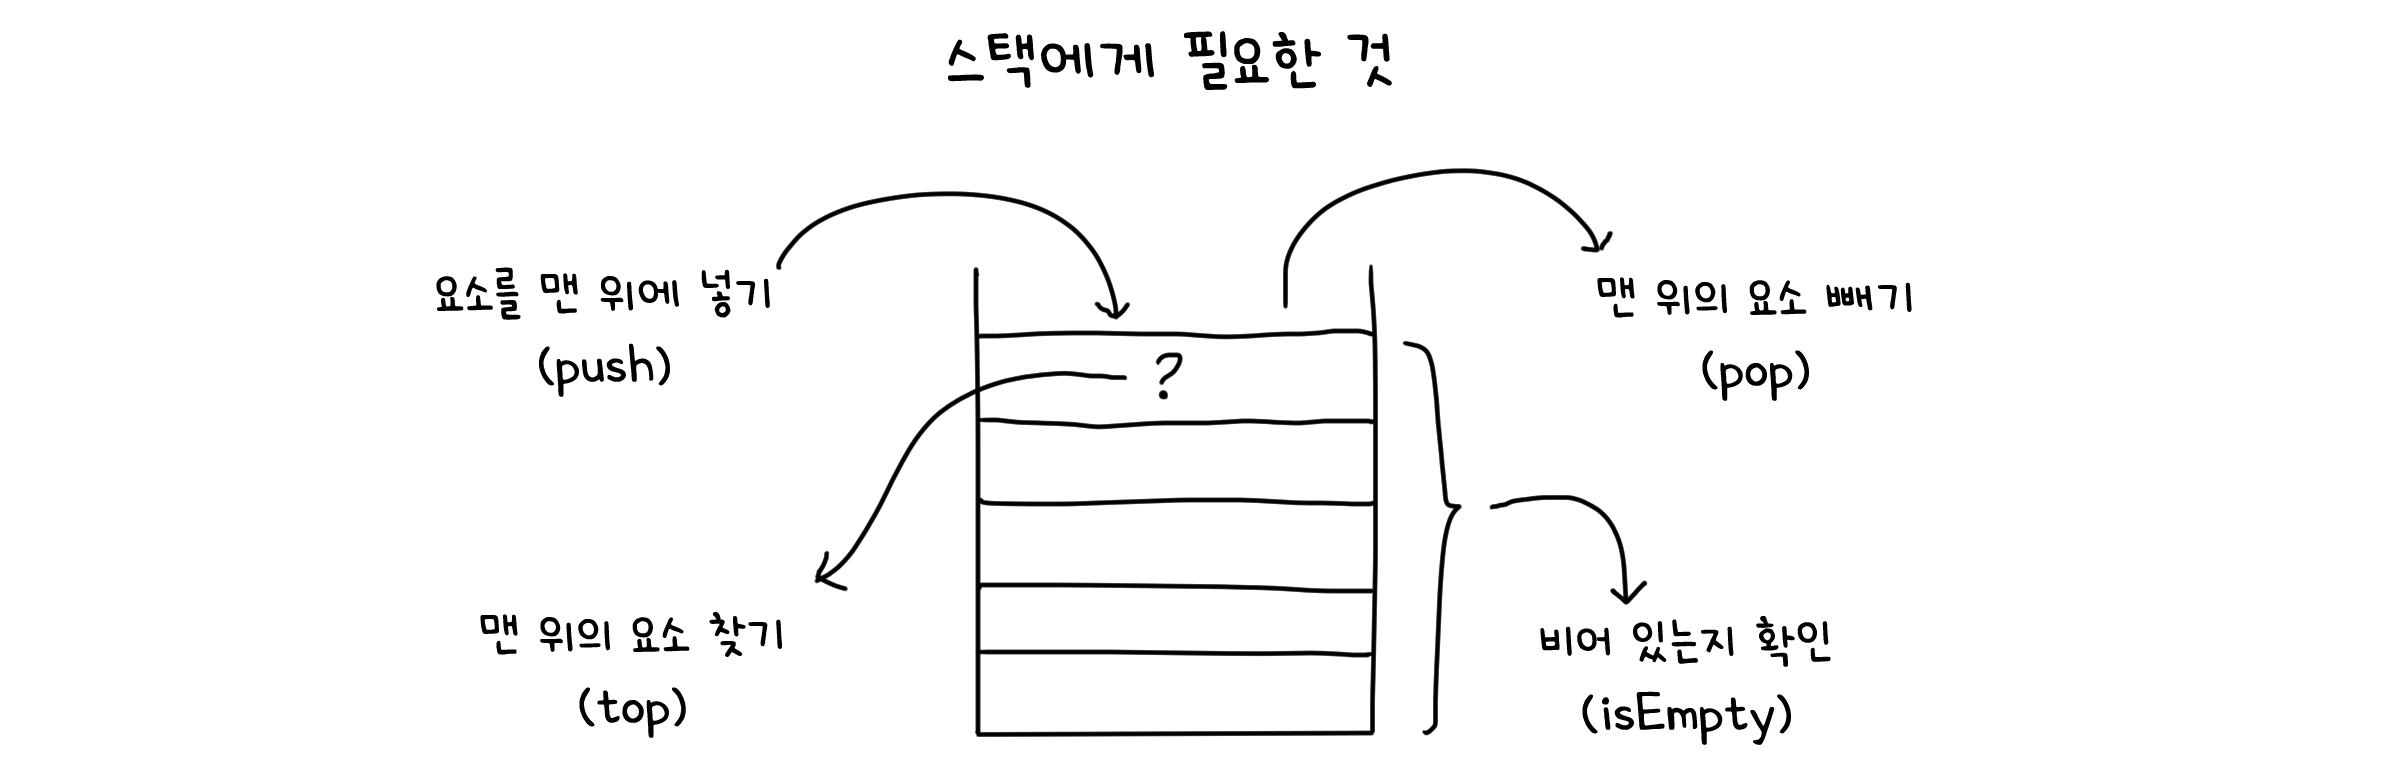 스택에게 필요한 것
요소를 맨 위에 넣기
(push)
맨 위의 요소 빼기
(pop)
?
맨 위의 요소 찾기
(top)
비어 있는지 확인
(isEmpty)